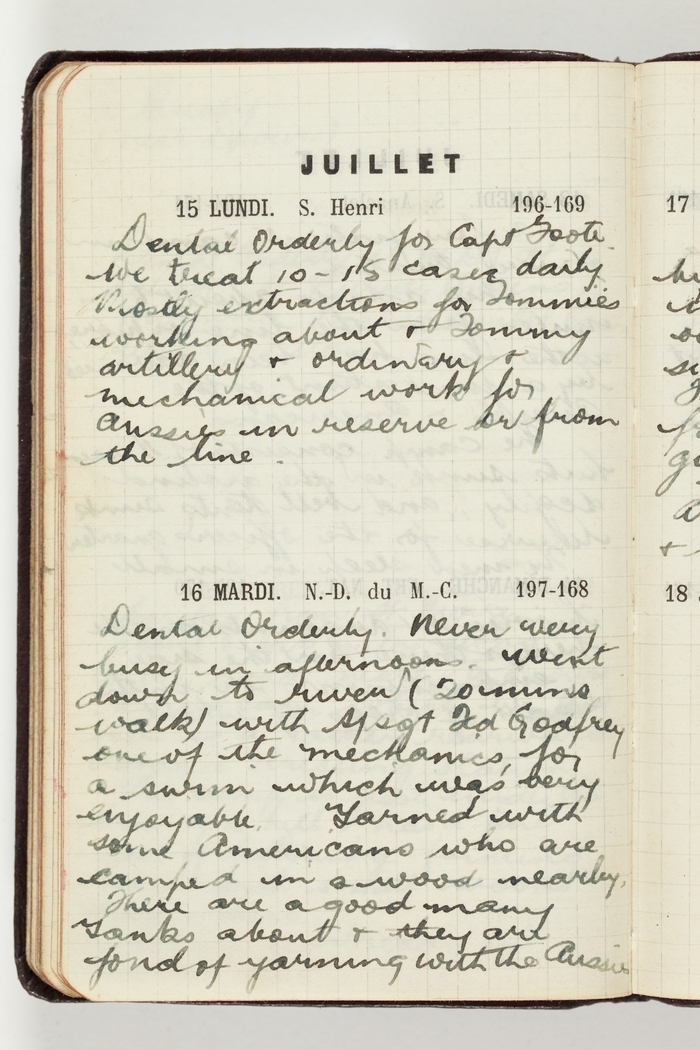 JUILLET
15 LUNDI. S. Henri 196-169
Dental Orderly for Capt Foote.
We treat 10-15 cases daily
Mostly extractions for Tommies
working about & Tommy
artillery & ordinary &
mechanical work for
Aussies in reserve or from
the line.
16 MARDI. N.-D. du M.-C. 197-168
Dental Orderly. Never very
busy in afternoons. Went
down to river (20 mins
walk) with S/sgt Ted Godfrey
one of the mechanics, for
a swim which was very
enjoyable. Yarned with
some Americans who are
camped in a wood nearby.
There are a good many
Yanks about & they are
fond of yarning with the Aussies
17
18